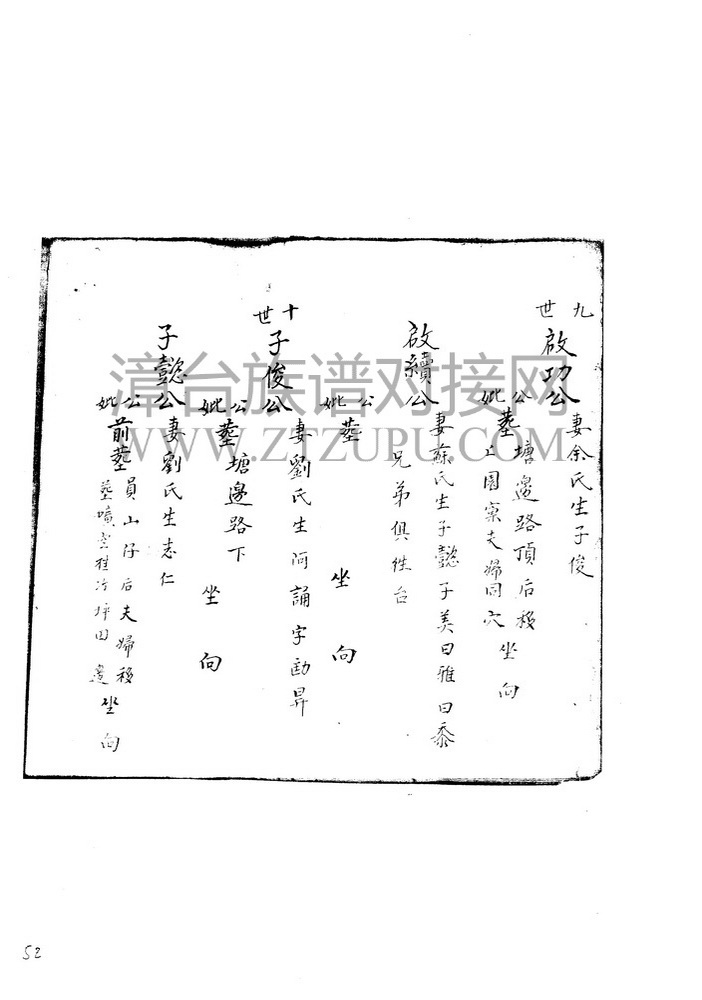 九世
啟功公
妻余氏生子俊
公妣墓 塘邊路頂后移
上園寮夫婦同穴 坐 向
啟續公
妻蘇氏生子懿子美曰雅曰泰
兄弟俱徃台
公妣墓 坐 向
十世
子俊公
妻劉氏生 阿誦字勔昇
公妣墓 塘邊路下
坐 向
子懿公
妻劉氏生志仁
公妣前墓 員山仔后夫婦移
坪田邊 坐 向
漳台族谱对接网
WWW.ZTZUPU.COM
52